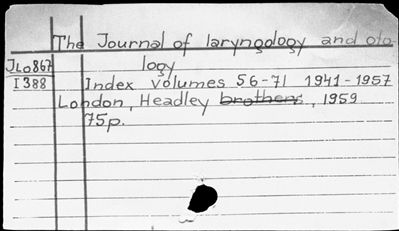 The Journal of laryngology and oto-
JLo867 logy
I388 Index Volumes 56-71 1941-1957
London, Headley brothers, 1959
75p.